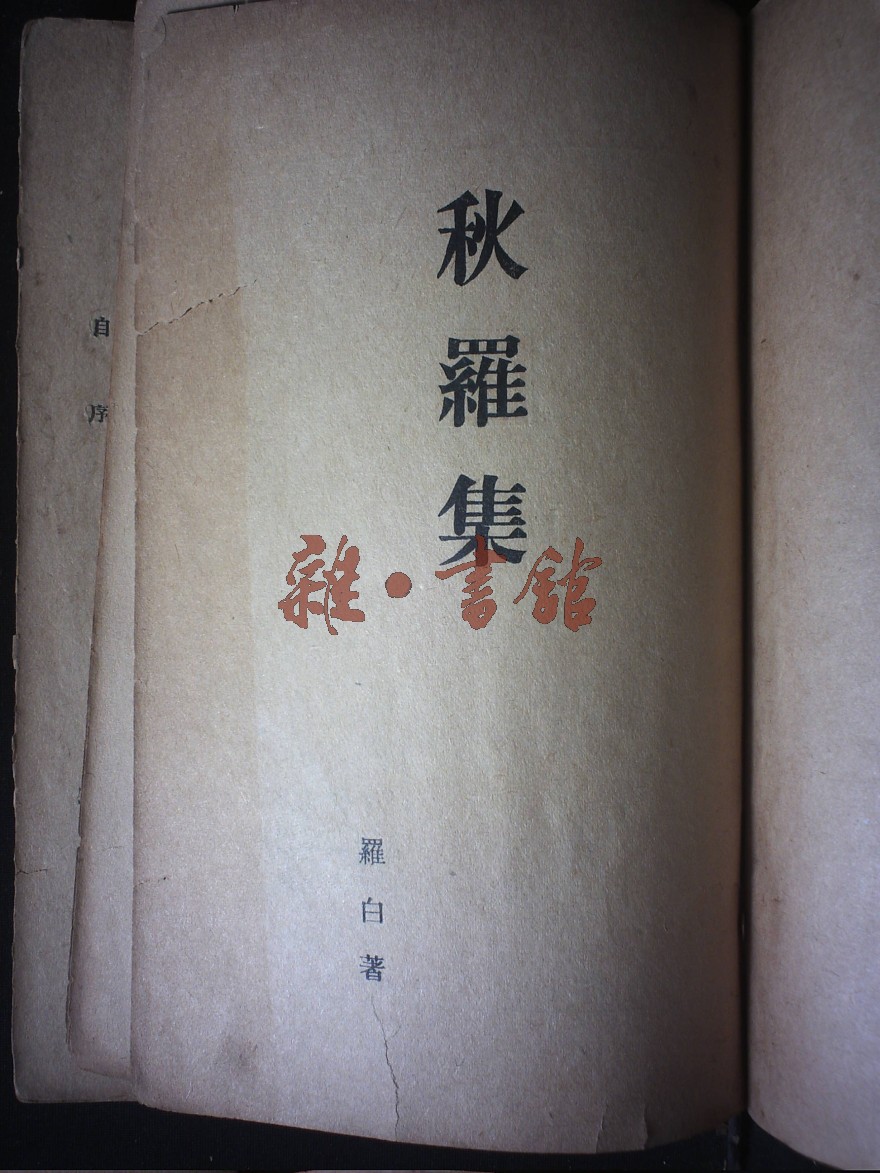 秋羅集
羅白著
自序
雜·書館